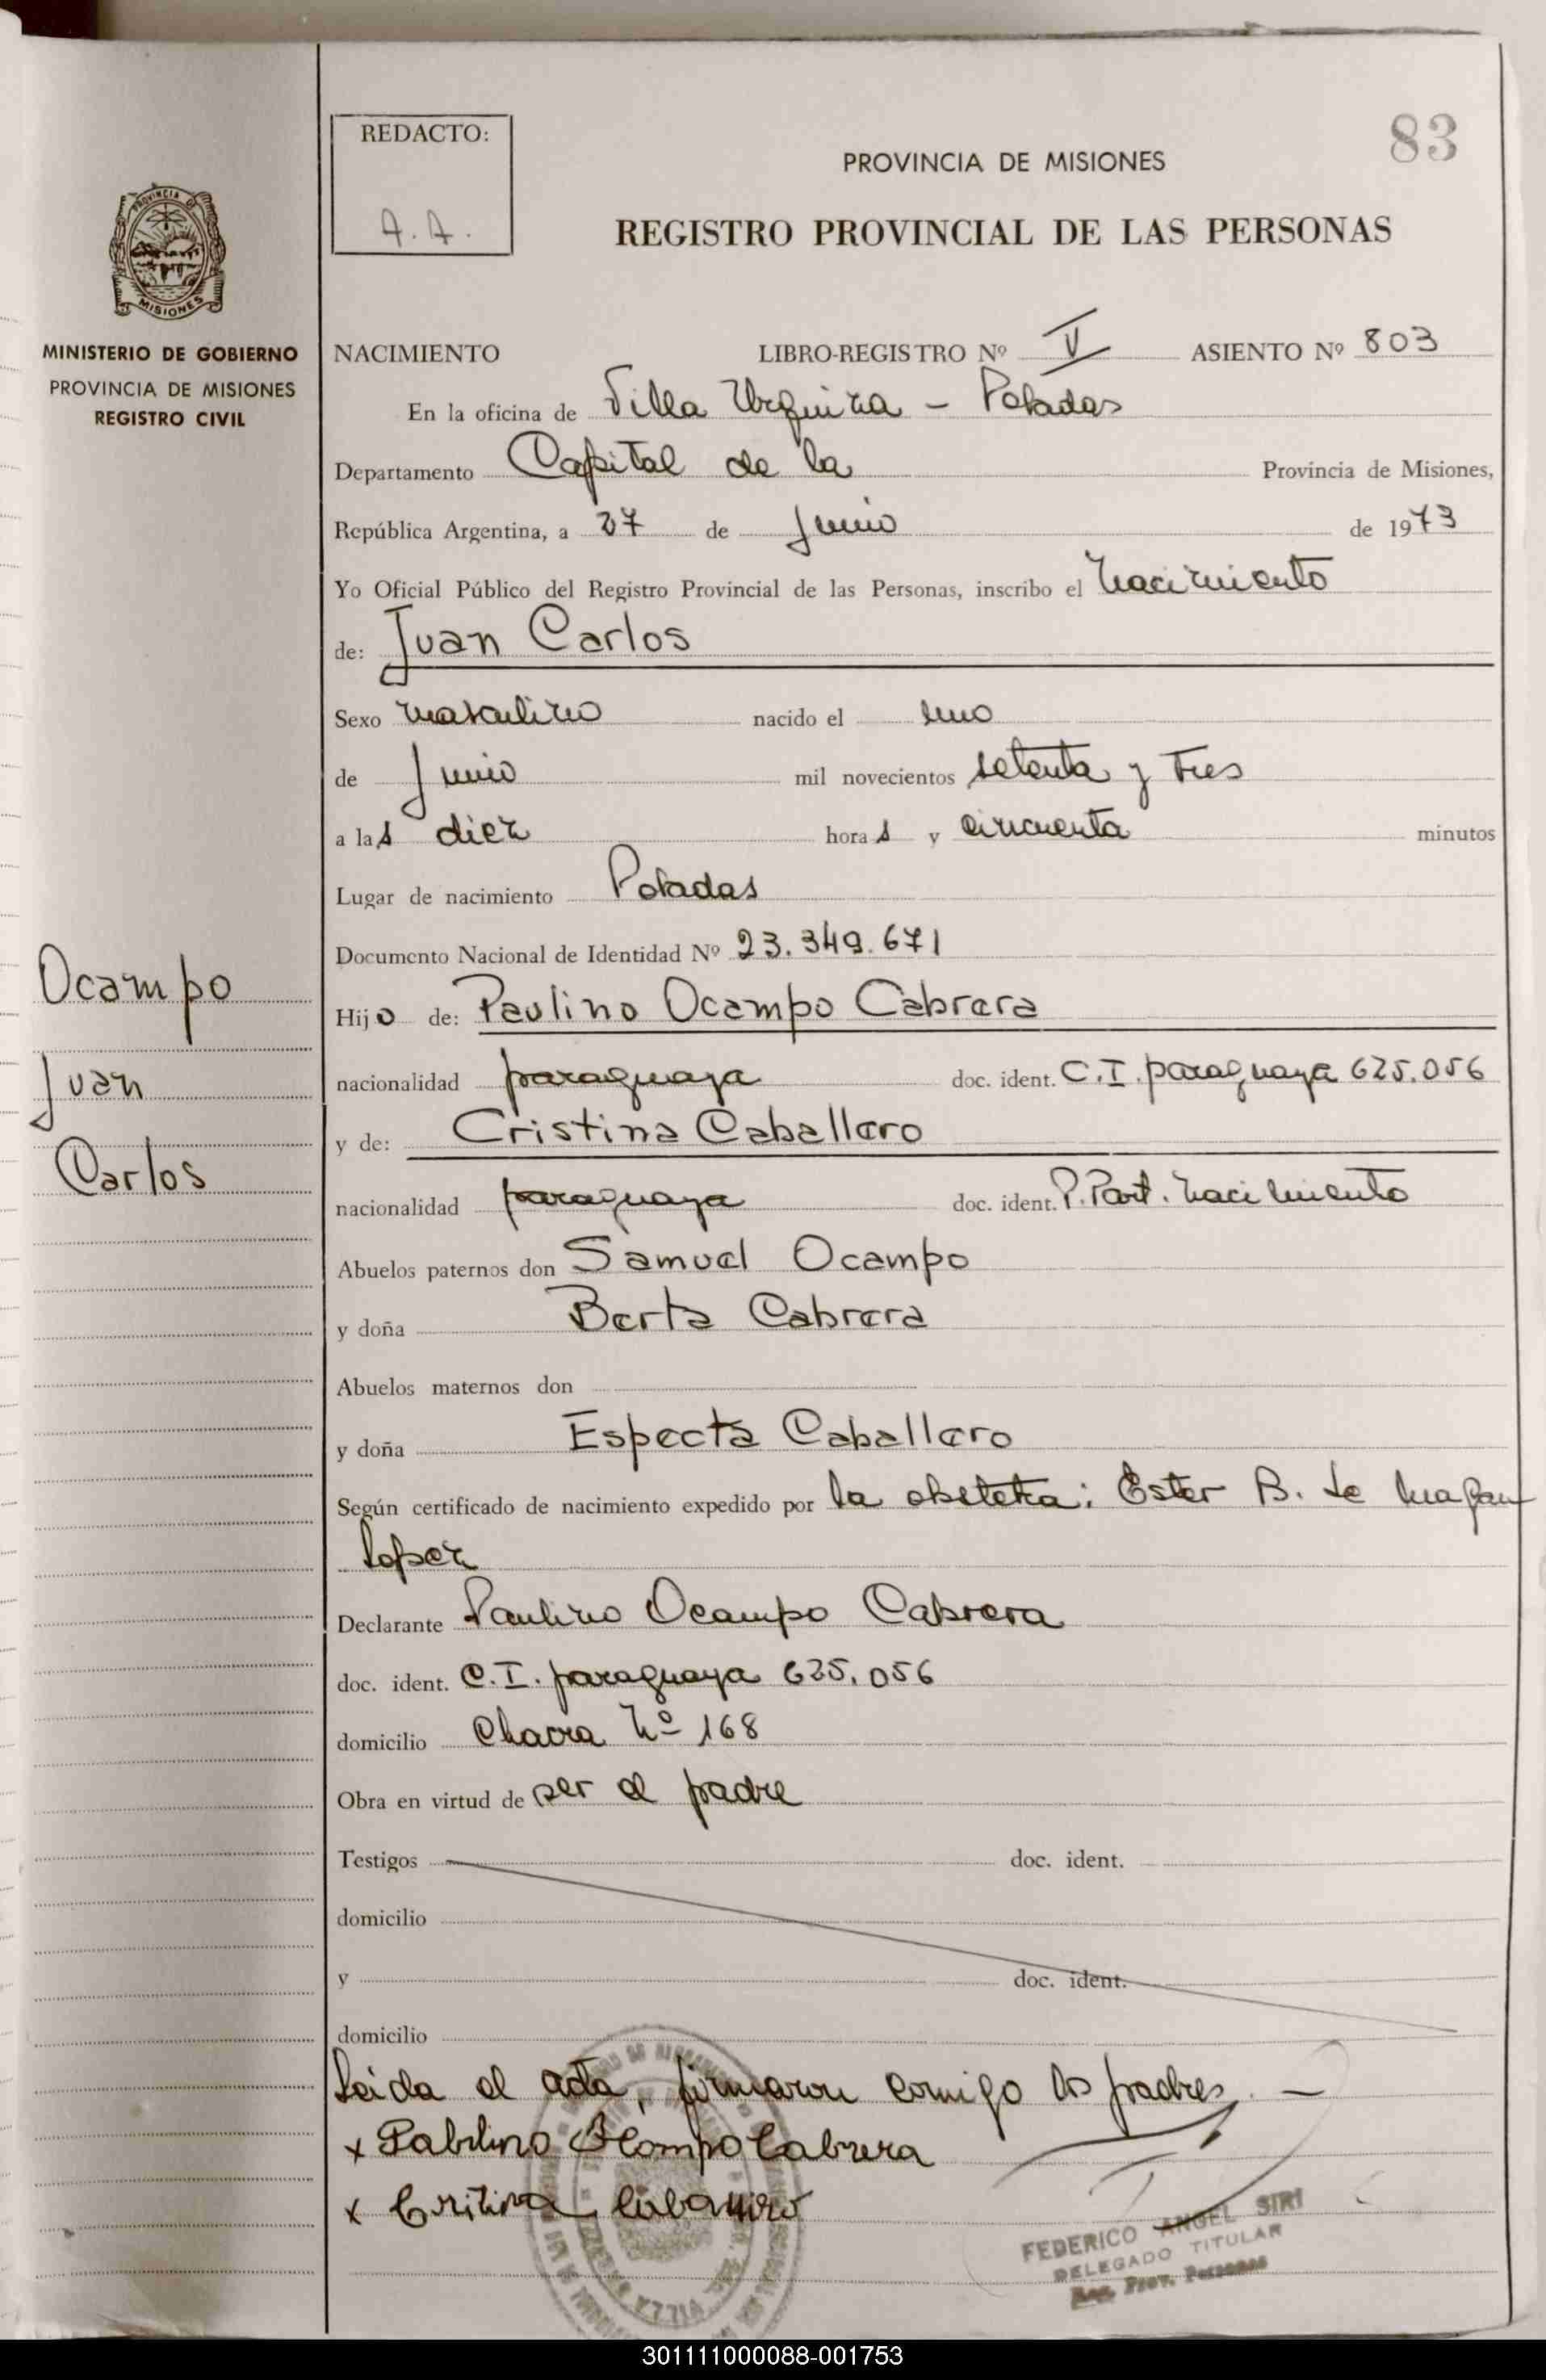 83
REDACTO:
A. A.
PROVINCIA DE MISIONES
REGISTRO PROVINCIAL DE LAS PERSONAS
PROVINCIA DE
MISIONES
MINISTERIO DE GOBIERNO
PROVINCIA DE MISIONES
REGISTRO CIVIL
NACIMIENTO LIBRO-REGISTRO Nº V ASIENTO Nº 803
En la oficina de Villa Urquiza - Posadas
Departamento Capital de la Provincia de Misiones,
República Argentina, a 27 de Junio de 1973
Yo Oficial Público del Registro Provincial de las Personas, inscribo el nacimiento
de: Juan Carlos
Sexo masculino nacido el uno
de Junio mil novecientos setenta y tres
a las diez horas y cincuenta minutos
Lugar de nacimiento Posadas
Documento Nacional de Identidad Nº 23.349.671
Ocampo
Juan
Carlos
Hijo de: Paulino Ocampo Cabrera
nacionalidad paraguaya doc. ident. C.I. paraguaya 625.056
y de: Cristina Caballero
nacionalidad paraguaya doc. ident. P. Part. nacimiento
Abuelos paternos don Samuel Ocampo
y doña Berta Cabrera
Abuelos maternos don
y doña Especta Caballero
Según certificado de nacimiento expedido por la obstetra: Ester B. de
Lopez
Declarante Paulino Ocampo Cabrera
doc. ident. C.I. paraguaya 625.056
domicilio Chacra Nº 168
Obra en virtud de ser el padre
Testigos doc. ident.
domicilio
y doc. ident.
domicilio
Leida el acta, firmaron comigo los padres. —
x Pablino Ocompo Cabrera
x Critina
FEDERICO ANGEL SIRI
DELEGADO TITULAR
Reg. Prov. Personas
301111000088-001753